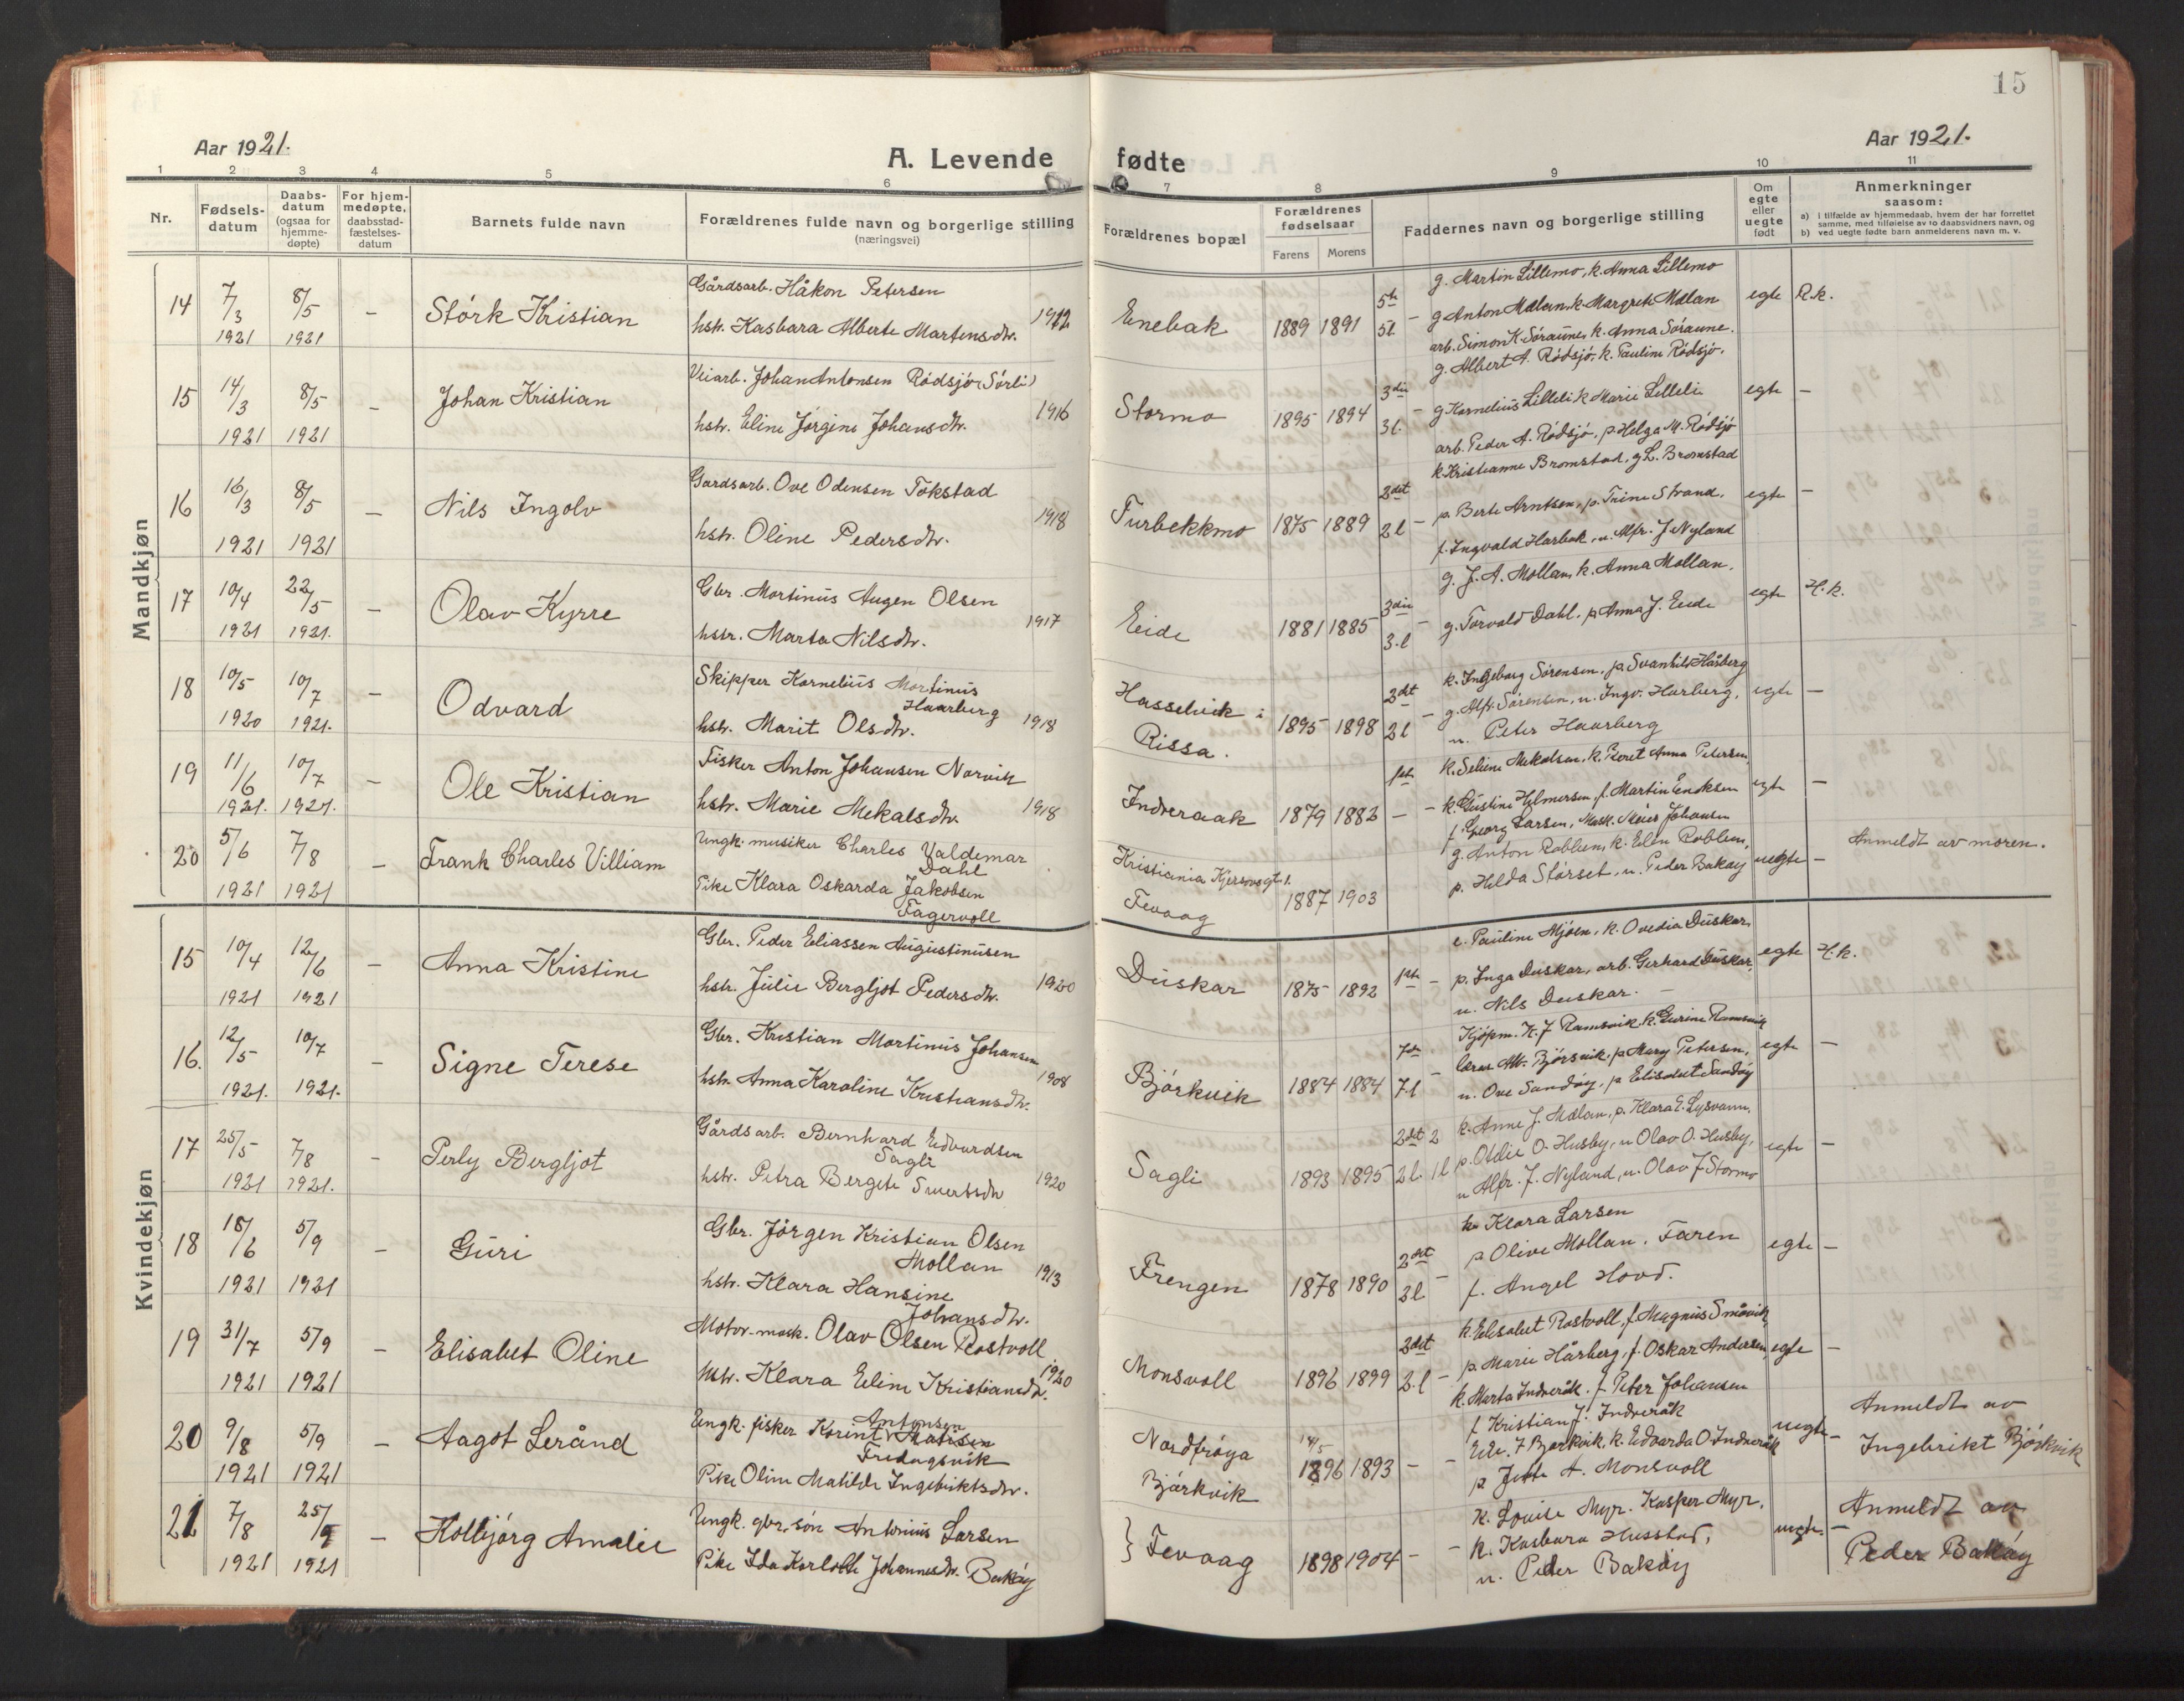 15
Aar 1921.
A. Levende fødte
Aar 1921.
1 2 3 4 5 6 7 8 9 10 11
Nr.
Fødsels-
datum
Daabs-
datum
(ogsaa for
hjemme-
døpte)
For hjem-
medøpte,
daabsstad-
fæstelses-
datum
Barnets fulde navn
Forældrenes fulde navn og borgerlige stilling
(næringsvei)
Forældrenes bopæl
Forældrenes
fødselsaar
Farens Morens
Faddernes navn og borgerlige stilling
Om
egte
eller
uegte
født
Anmerkninger
saasom:
a) i tilfælde av hjemmedaab, hvem der har forrettet
samme, med tilføielse av to daabsvidners navn, og
b) ved uegte fødte barn anmelderens navn m. v.
Mandkjøn
14 7/3 1921 8/5 1921 – Størk Kristian
Gårdsarb. Håkon Petersen
hstr. Kasbara Alberte Martensdtr. 1912
Enebak 1889 1891 5te 5l. –
g. Martin Lillemo, k. Anna Lillemo
g Anton Mælan, k. Margrete Mælan
arb. Simon K. Søraune, k. Anna Søraune.
egte R.k.
15 14/3 1921 8/5 1921 – Johan Kristian
Veiarb. Johan Antonsen Rødsjø (Sørli)
hstr. Eline Jørgine Johansdtr. 1916
Stormo 1895 1894 3die 3l. –
g. Albert A. Rødsjø, k. Pauline Rødsjø.
g Kornelius Lilleli k Marie Lilleli
arb. Peder A. Rødsjø, p. Helga M. Rødsjø
egte –
16 16/3 1921 8/5 1921 – Nils Ingolv
Gardsarb. Ove Odensen Tokstad
hstr. Oline Pedersdtr. 1918
Turbekkmo 1875 1889 2det 2l –
k Kristianne Bromstad, g L. Bromstad
p. Berte Arntsen, p. Trine Strand.
f. Ingvald Harbak, u. Alfr. J Nyland
egte –
17 10/4 1921 22/5 1921. – Olav Kyrre
Gbr. Martinus Augen Olsen
hstr. Marta Nilsdtr. 1917
Eide 1881 1885 3die 3.l –
g. J. A. Mollan, k. Anna Mollan.
g. Torvald Dahl. p Anna J. Eide
egte H.k.
18 10/5 1920 10/7 1921. – Odvard
Skipper Kornelius Martinus
Haarberg
hstr. Marit Olsdtr. 1918
Hasselvik i
Rissa.
1895 1898 2det 2l –
k. Ingeborg Sørensen, p Svanhild Hårberg
g. Alfr. Sørensen, u. Ingv. Harberg,
u. Peter Haarberg
egte –
19 11/6 1921. 10/7 1921. – Ole Kristian
Fisker Anton Johansen Norvik
hstr. Marie Mekalsdtr. 1918
Indreraak 1879 1882 1ste – –
k. Seliene Mekalsen, k. Beret Anna Petersen,
k. Gustine Helmersen, f. Martin Eriksen
f. Georg Larsen, Mask. Meier Johansen
egte –
20 5/6 1921 7/8 1921 – Frank Charles Villiam
Ungk. musiker Charles Valdemar
Dahl
Pike Klara Oskarda Jakobsen
Fagervoll
Kristiania
Fevaag
1887 1903
g. Anton Roblem, k. Elen Roblem,
p. Hilda Størset, u. Peder Bakøy
uegte – Anmeldt av moren.
Kvindekjøn
15 10/4 1921 12/6 1921 – Anna Kristine
Gbr. Peder Eliassen Augustinusen
hstr. Julie Bergljot Pedersdtr. 1920
Duskar 1875 1892 1ste –
e. Pauline Mjøen, k. Ovedia Duskar,
p. Inga Duskar, arb. Gerhard Duskar,
u. Nils Duskar. –
egte H.k.
16. 12/5 1921. 10/7 1921. – Signe Terese
Gbr. Kristian Martinus Johansen
hstr. Anna Karoline Kristiansdtr. 1908
Bjørkvik 1884 1884 7de 7l –
Kjøpm. K. J Ramsvik, k. Gurine Ramsvik
lærer Alb. Bjørsvik, p Mary Petersen,
u. Ove Sandøy, p Elisabet Sandøy
egte –
17 25/5 1921 7/8 1921. – Perly Bergljot
Gårdsarb. Bernhard Edvardsen
Sagli
hstr. Petra Bergete Sivertsdtr 1920
Sagli 1893 1895 2det 2 2l. 1l
k. Anne J. Mælan, p. Klara E. Lysvann,
p. Otelie O. Husby, u Olav O. Husby,
u Alfr. J. Nyland, u. Olav J Stormo
egte –
18 18/6 1921 5/9 1921 – Guri
Gbr. Jørgen Kristian Olsen
Mollan
hstr. Klara Hansine
Johansdtr. 1913
Frengen 1878 1890 2det 2l –
k. Klara Larsen
p Olive Mollan. Faren
f. Angel Hovd.
egte –
19 31/7 1921 5/9 1921 – Elisabet Oline
Motor-mask. Olav Olsen Rostvoll
hstr. Klara Eline Kristiansdtr. 1920
Monsvoll 1896 1899 2det 2.l –
k. Elisabet Rostvoll, f. Magnus Småvik,
p. Marie Hårberg, f. Oskar Andersen,
k. Marta Indreråk. f. Peter Johansen
egte –
20 9/8 1921 5/9 1921 – Aagot Lerånd
Ungk. fisker Korint Antonsen
Fredagsvik
Pike Oline Matilde Ingebriktsdtr.
Nordfrøya
Bjørkvik
14/5 1896 1893 – –
f. Kristian J. Indreråk
Edv. J Bjørkvik, k. Edvarda O. Indreråk
p Jette A. Monsvoll
uegte –
Anmeldt av
Ingebrikt Bjørkvik
21 7/8 1921 25/9 1921 – Kolbjørg Amalie
Ungk. gbr. søn Antonius Larsen
Pike Ida Karlotte Johannesdtr. Bakøy
} Fevaag 1898 1904 – –
k. Lovise Myr. Kasper Myr.
k. Kasbara Husstad,
u. Peder Bakøy
uegte. –
Anmeldt av
Peder Bakøy